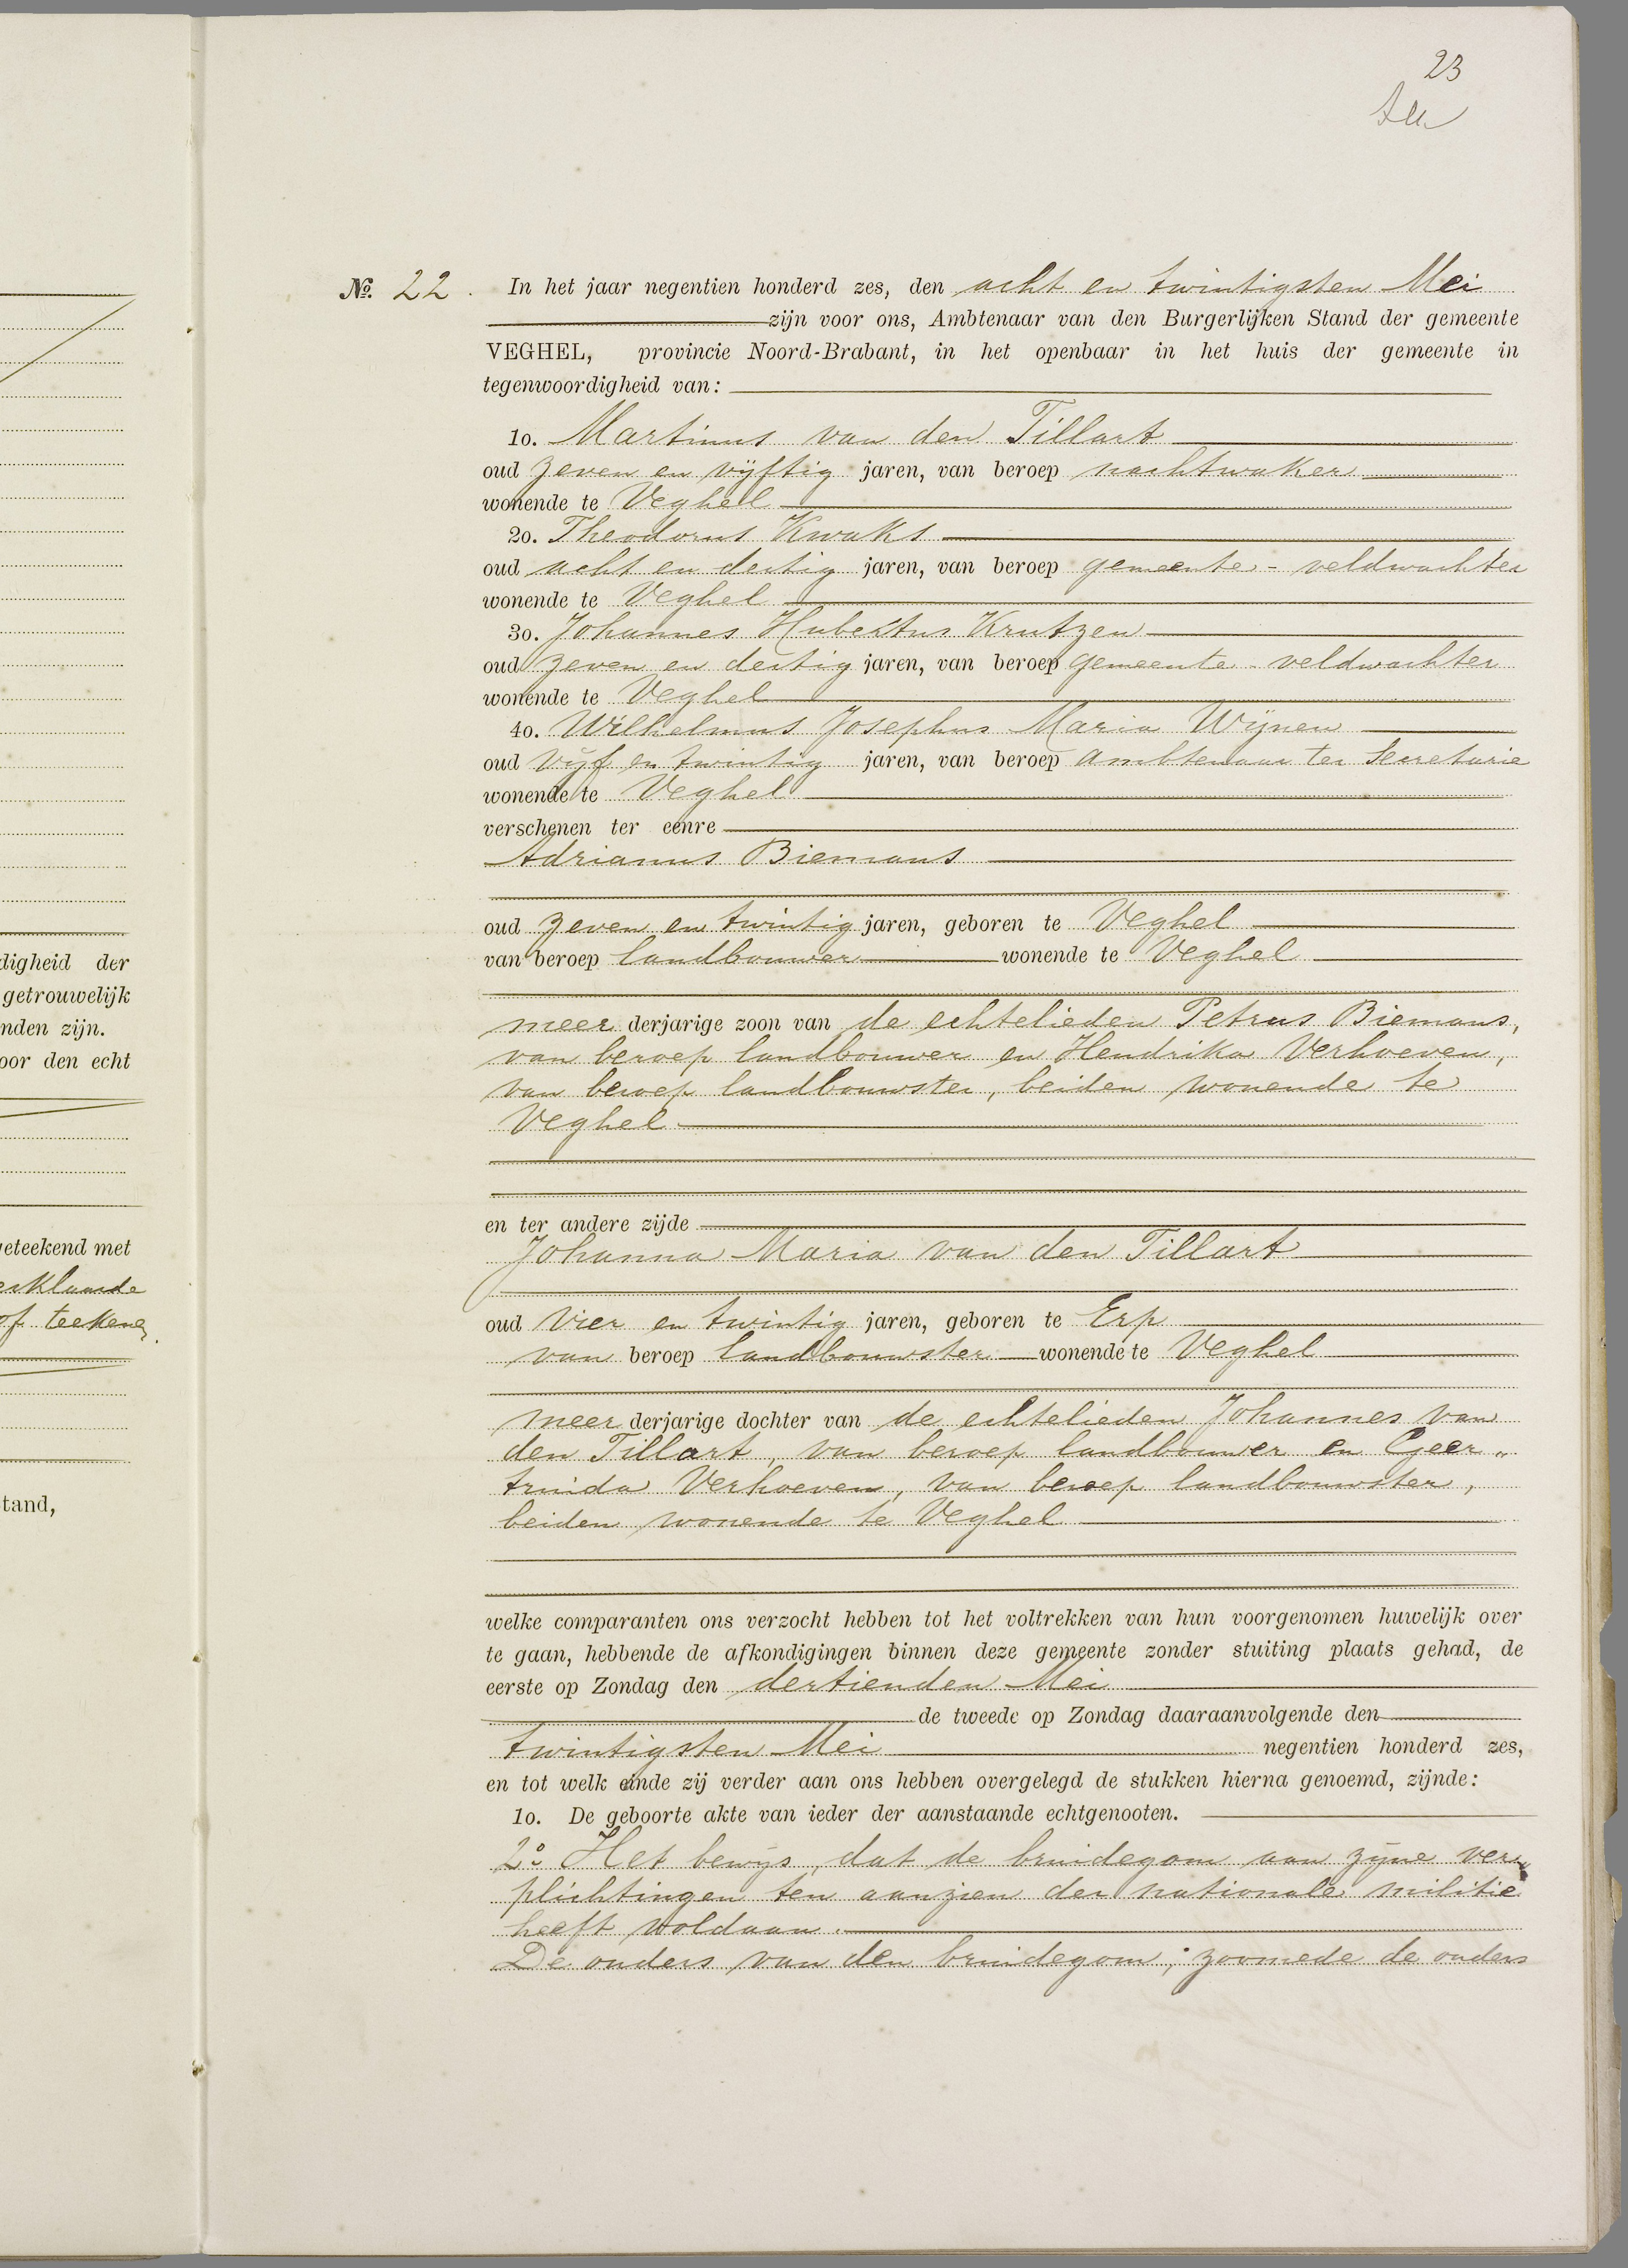 23
digheid der
getrouwelijk
nden zijn.
oor den echt
geteekend met
erklaarde
of teekenen
tand,
No. 22. In het jaar negentien honderd zes, den acht en twintigsten Mei
zijn voor ons, Ambtenaar van den Burgerlijken Stand der gemeente
VEGHEL, provincie Noord-Brabant, in het openbaar in het huis der gemeente in
tegenwoordigheid van:
1o. Martinus van den Tillart
oud zeven en vijftig jaren, van beroep nachtwaker
wonende te Veghel
2o. Theodorus Kwaks
oud acht en dertig jaren, van beroep gemeente-veldwachter
wonende te Veghel
3o. Johannes Hubertus Krutzen
oud zeven en dertig jaren, van beroep gemeente-veldwachter
wonende te Veghel
4o. Wilhelmus Josephus Maria Wijnen
oud vijf en twintig jaren, van beroep ambtenaar ter Secretarie
wonende te Veghel
verschenen ter eenre
Adrianus Biemans
oud zeven en twintig jaren, geboren te Veghel
van beroep landbouwer wonende te Veghel
meerderjarige zoon van de echtelieden Petrus Biemans,
van beroep landbouwer en Hendrika Verhoeven,
van beroep landbouwster, beiden wonende te
Veghel
en ter andere zijde
Johanna Maria van den Tillart
oud vier en twintig jaren, geboren te Erp
van beroep landbouwster wonende te Veghel
meerderjarige dochter van de echtelieden Johannes van
den Tillart, van beroep landbouwer en Geer„
truida Verhoeven, van beroep landbouwster,
beiden wonende te Veghel
welke comparanten ons verzocht hebben tot het voltrekken van hun voorgenomen huwelijk over
te gaan, hebbende de afkondigingen binnen deze gemeente zonder stuiting plaats gehad, de
eerste op Zondag den dertienden Mei
de tweede op Zondag daaraanvolgende den
twintigsten Mei negentien honderd zes,
en tot welk einde zij verder aan ons hebben overgelegd de stukken hierna genoemd, zijnde:
1o. De geboorte akte van ieder der aanstaande echtgenooten.
2o Het bewijs, dat de bruidegom aan zijne ver„
plichtingen ten aanzien der nationale militie
heeft voldaan.
De ouders van den bruidegom, zoomede de ouders